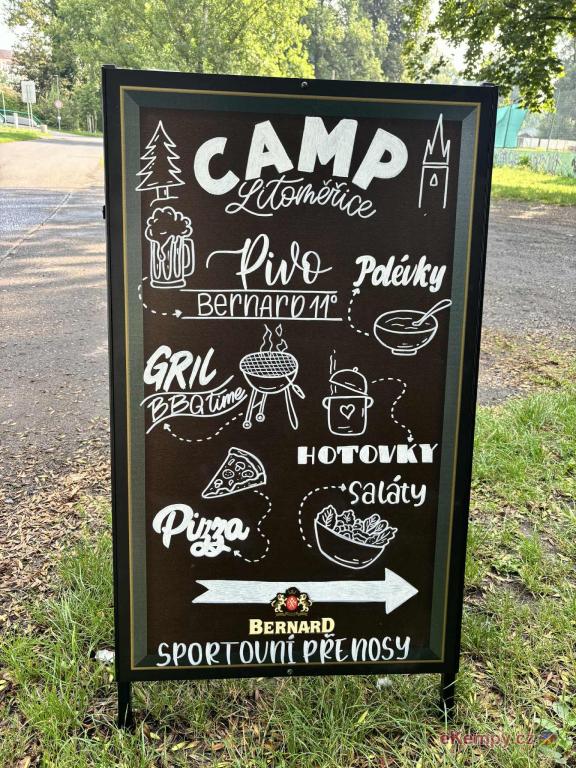 CAMP
Litoměřice
Pivo
BERNARD 11°
Polévky
GRIL
BBQ time
HOTOVKY
Saláty
Pizza
BERNARD
SPORTOVNÍ PŘENOSY
eKempy.cz